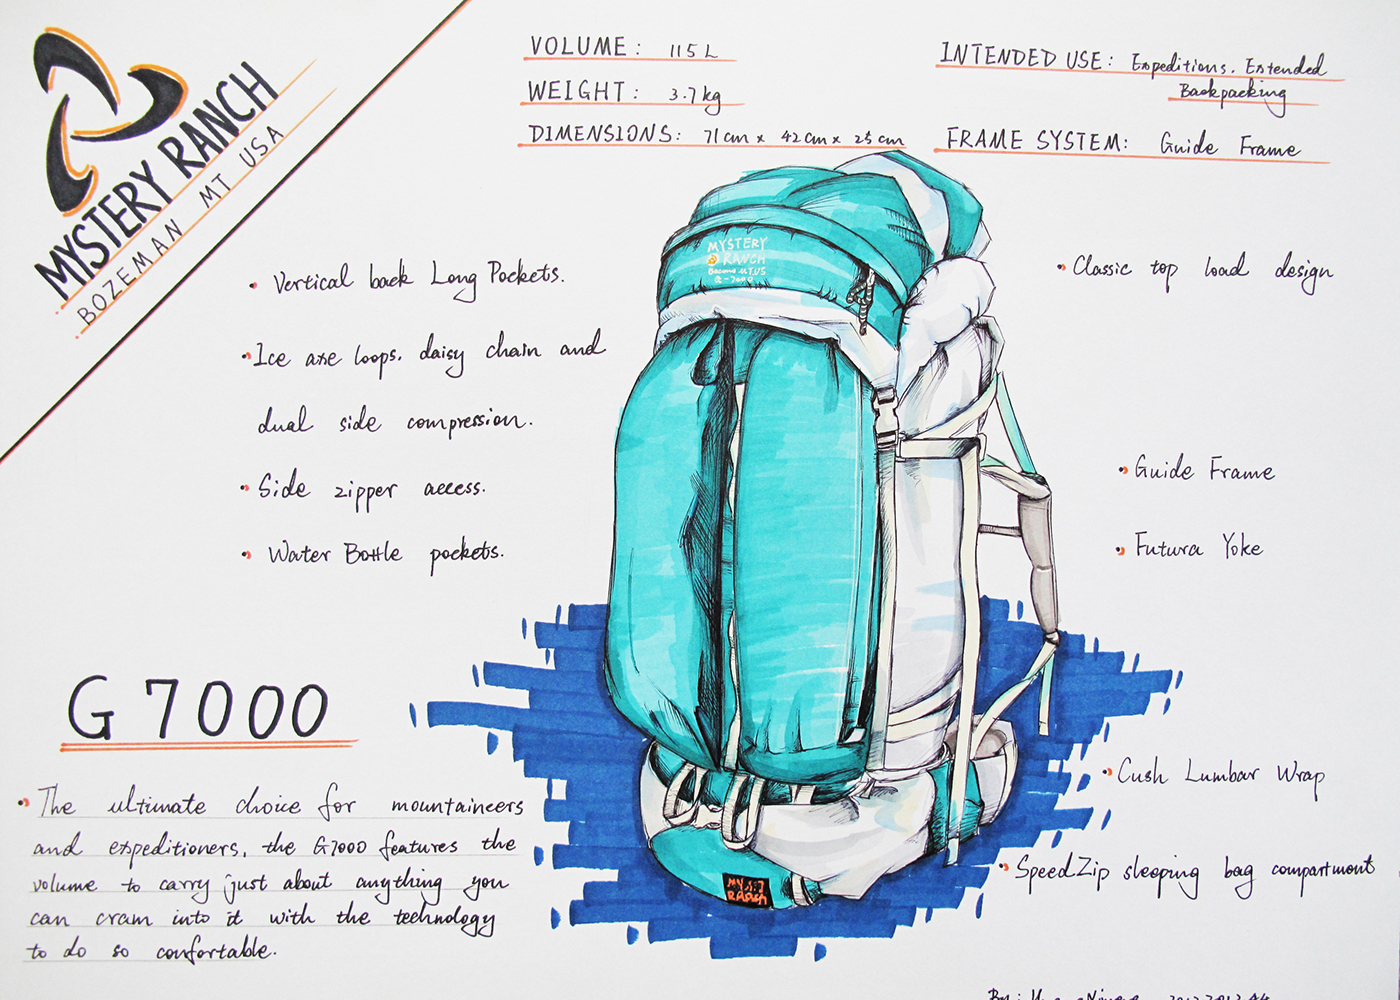 MYSTERY RANCH
BOZEMAN MT USA
VOLUME: 115L
WEIGHT: 3.7kg
DIMENSIONS: 71cm x 42cm x 25cm
INTENDED USE: Expeditions. Extended
Backpacking
FRAME SYSTEM: Guide Frame
MYSTERY
RANCH
Vertical back Long Pockets.
Ice axe loops. daisy chain and
dual side compression.
Side zipper access.
Water Bottle pockets.
Classic top load design
Guide Frame
Futura Yoke
Cush Lumbar Wrap
SpeedZip sleeping bag compartment
G7000
The ultimate choice for mountaineers
and expeditioners, the G7000 features the
volume to carry just about anything you
can cram into it with the technology
to do so comfortable.
By: